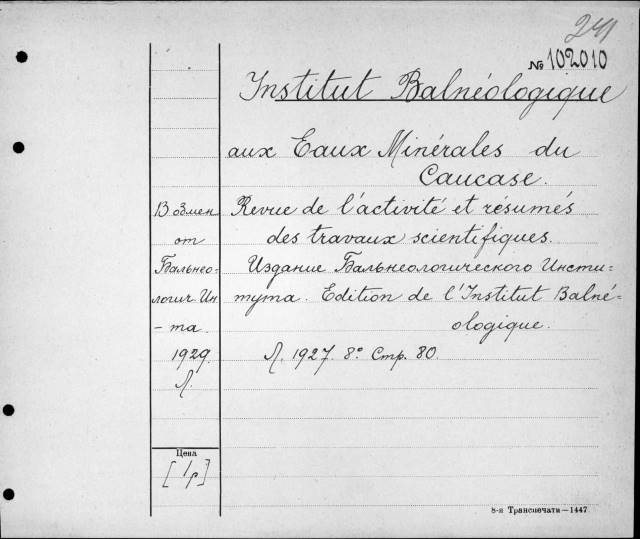 241
№ 102010
Institut Balnéologique
aux Eaux Minérales du
Caucase.
Revue de l'activité et résumés
des travaux scientifiques.
Издание Бальнеологического Инсти=
тута. Edition de l'Institut Balné=
ologique.
Л. 1927. 8° Стр. 80.
В обмен
от
Бальнео-
логич. Ин
-та.
1929.
Л.
Цена
[1р]
8-я Транспечати—1447